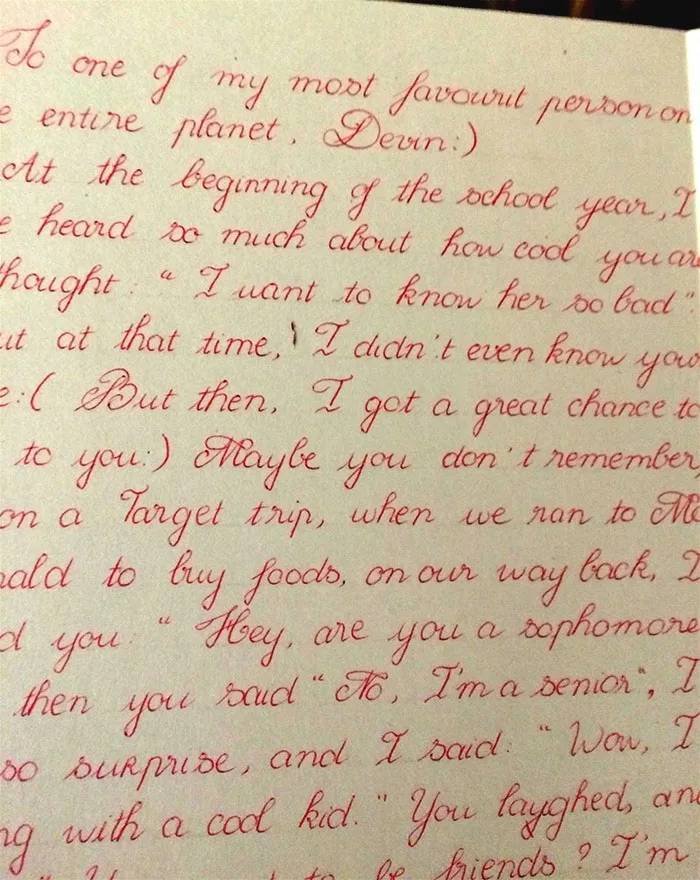 To one of my most favourit person on
e entire planet. Devin:)
At the beginning of the school year, I
e heard so much about how cool you are
hought: “ I want to know her so bad ”.
ut at that time, I didn't even know you
e:( But then, I got a great chance to
to you:) Maybe you don't remember,
on a Target trip, when we ran to Mc
nald to buy foods, on our way back, I
d you: “ Hey, are you a sophomore
then you said “ No, I'm a senior”, I
so surprise, and I said: “ Wow, I
ng with a cool kid.” You layghed, and
to be friends? I'm